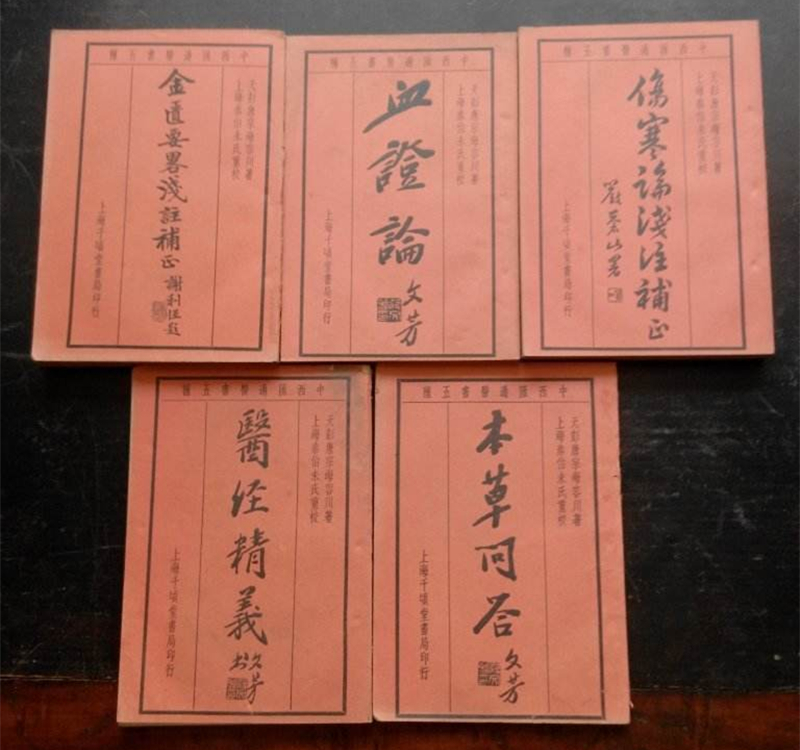 中西匯通醫書五種
天彭唐宗海容川著
上海秦伯未氏重校
金匱要畧淺註補正
謝利恒題
上海千頃堂書局印行
中西匯通醫書五種
天彭唐宗海容川著
上海秦伯未氏重校
血證論
文芳
上海千頃堂書局印行
中西匯通醫書五種
天彭唐宗海容川著
上海秦伯未氏重校
傷寒論淺注補正
嚴蒼山署
上海千頃堂書局印行
中西匯通醫書五種
天彭唐宗海容川著
上海秦伯未氏重校
醫經精義
文芳
上海千頃堂書局印行
中西匯通醫書五種
天彭唐宗海容川著
上海秦伯未氏重校
本草問答
文芳
上海千頃堂書局印行